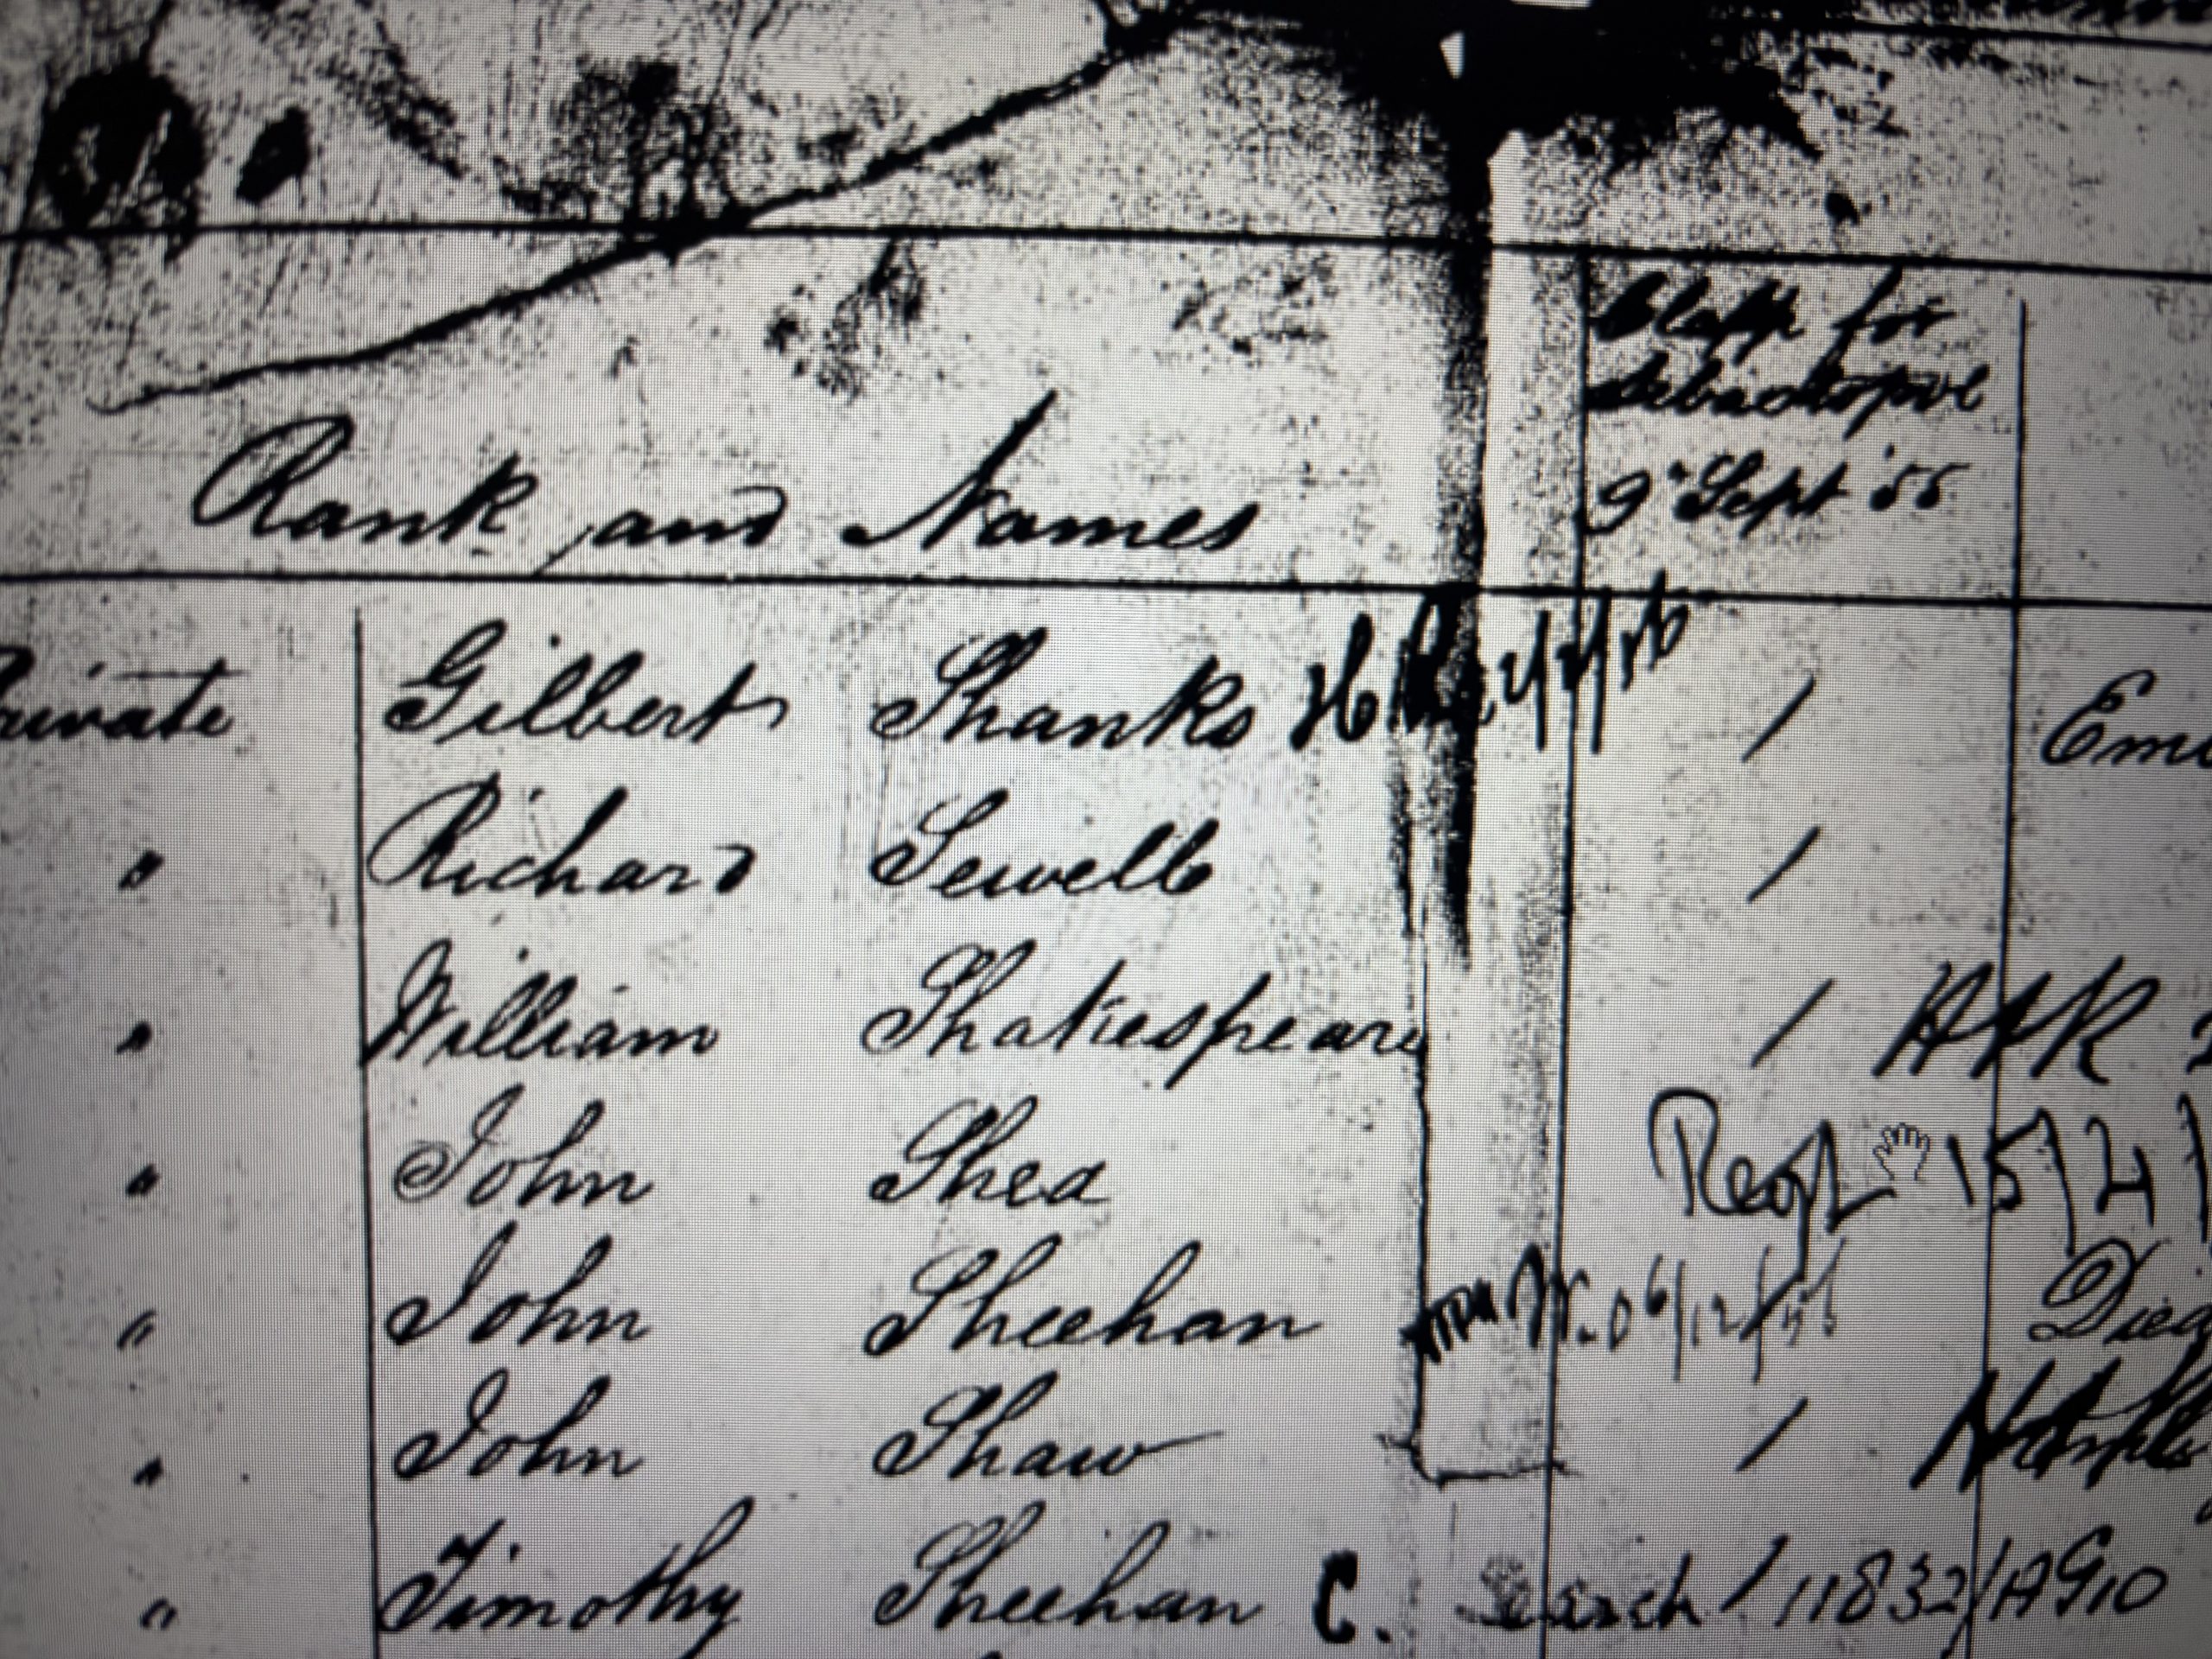 Clasp for
Sebastopol
9" Sept '55
Rank and Names
Private Gilbert Shanks /
" Richard Sewell /
" William Shakespeare /
" John Shea Regt 15/2/
" John Sheehan 6/12/
" John Shaw /
" Timothy Sheehan C. Search / 11832/A910